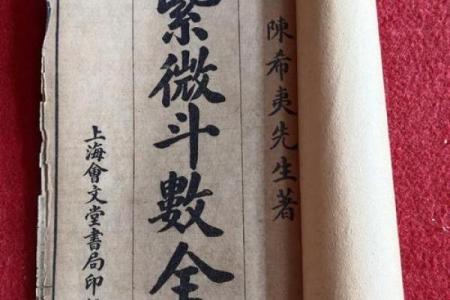 陳希夷先生著
紫微斗數全
上海會文堂書局印